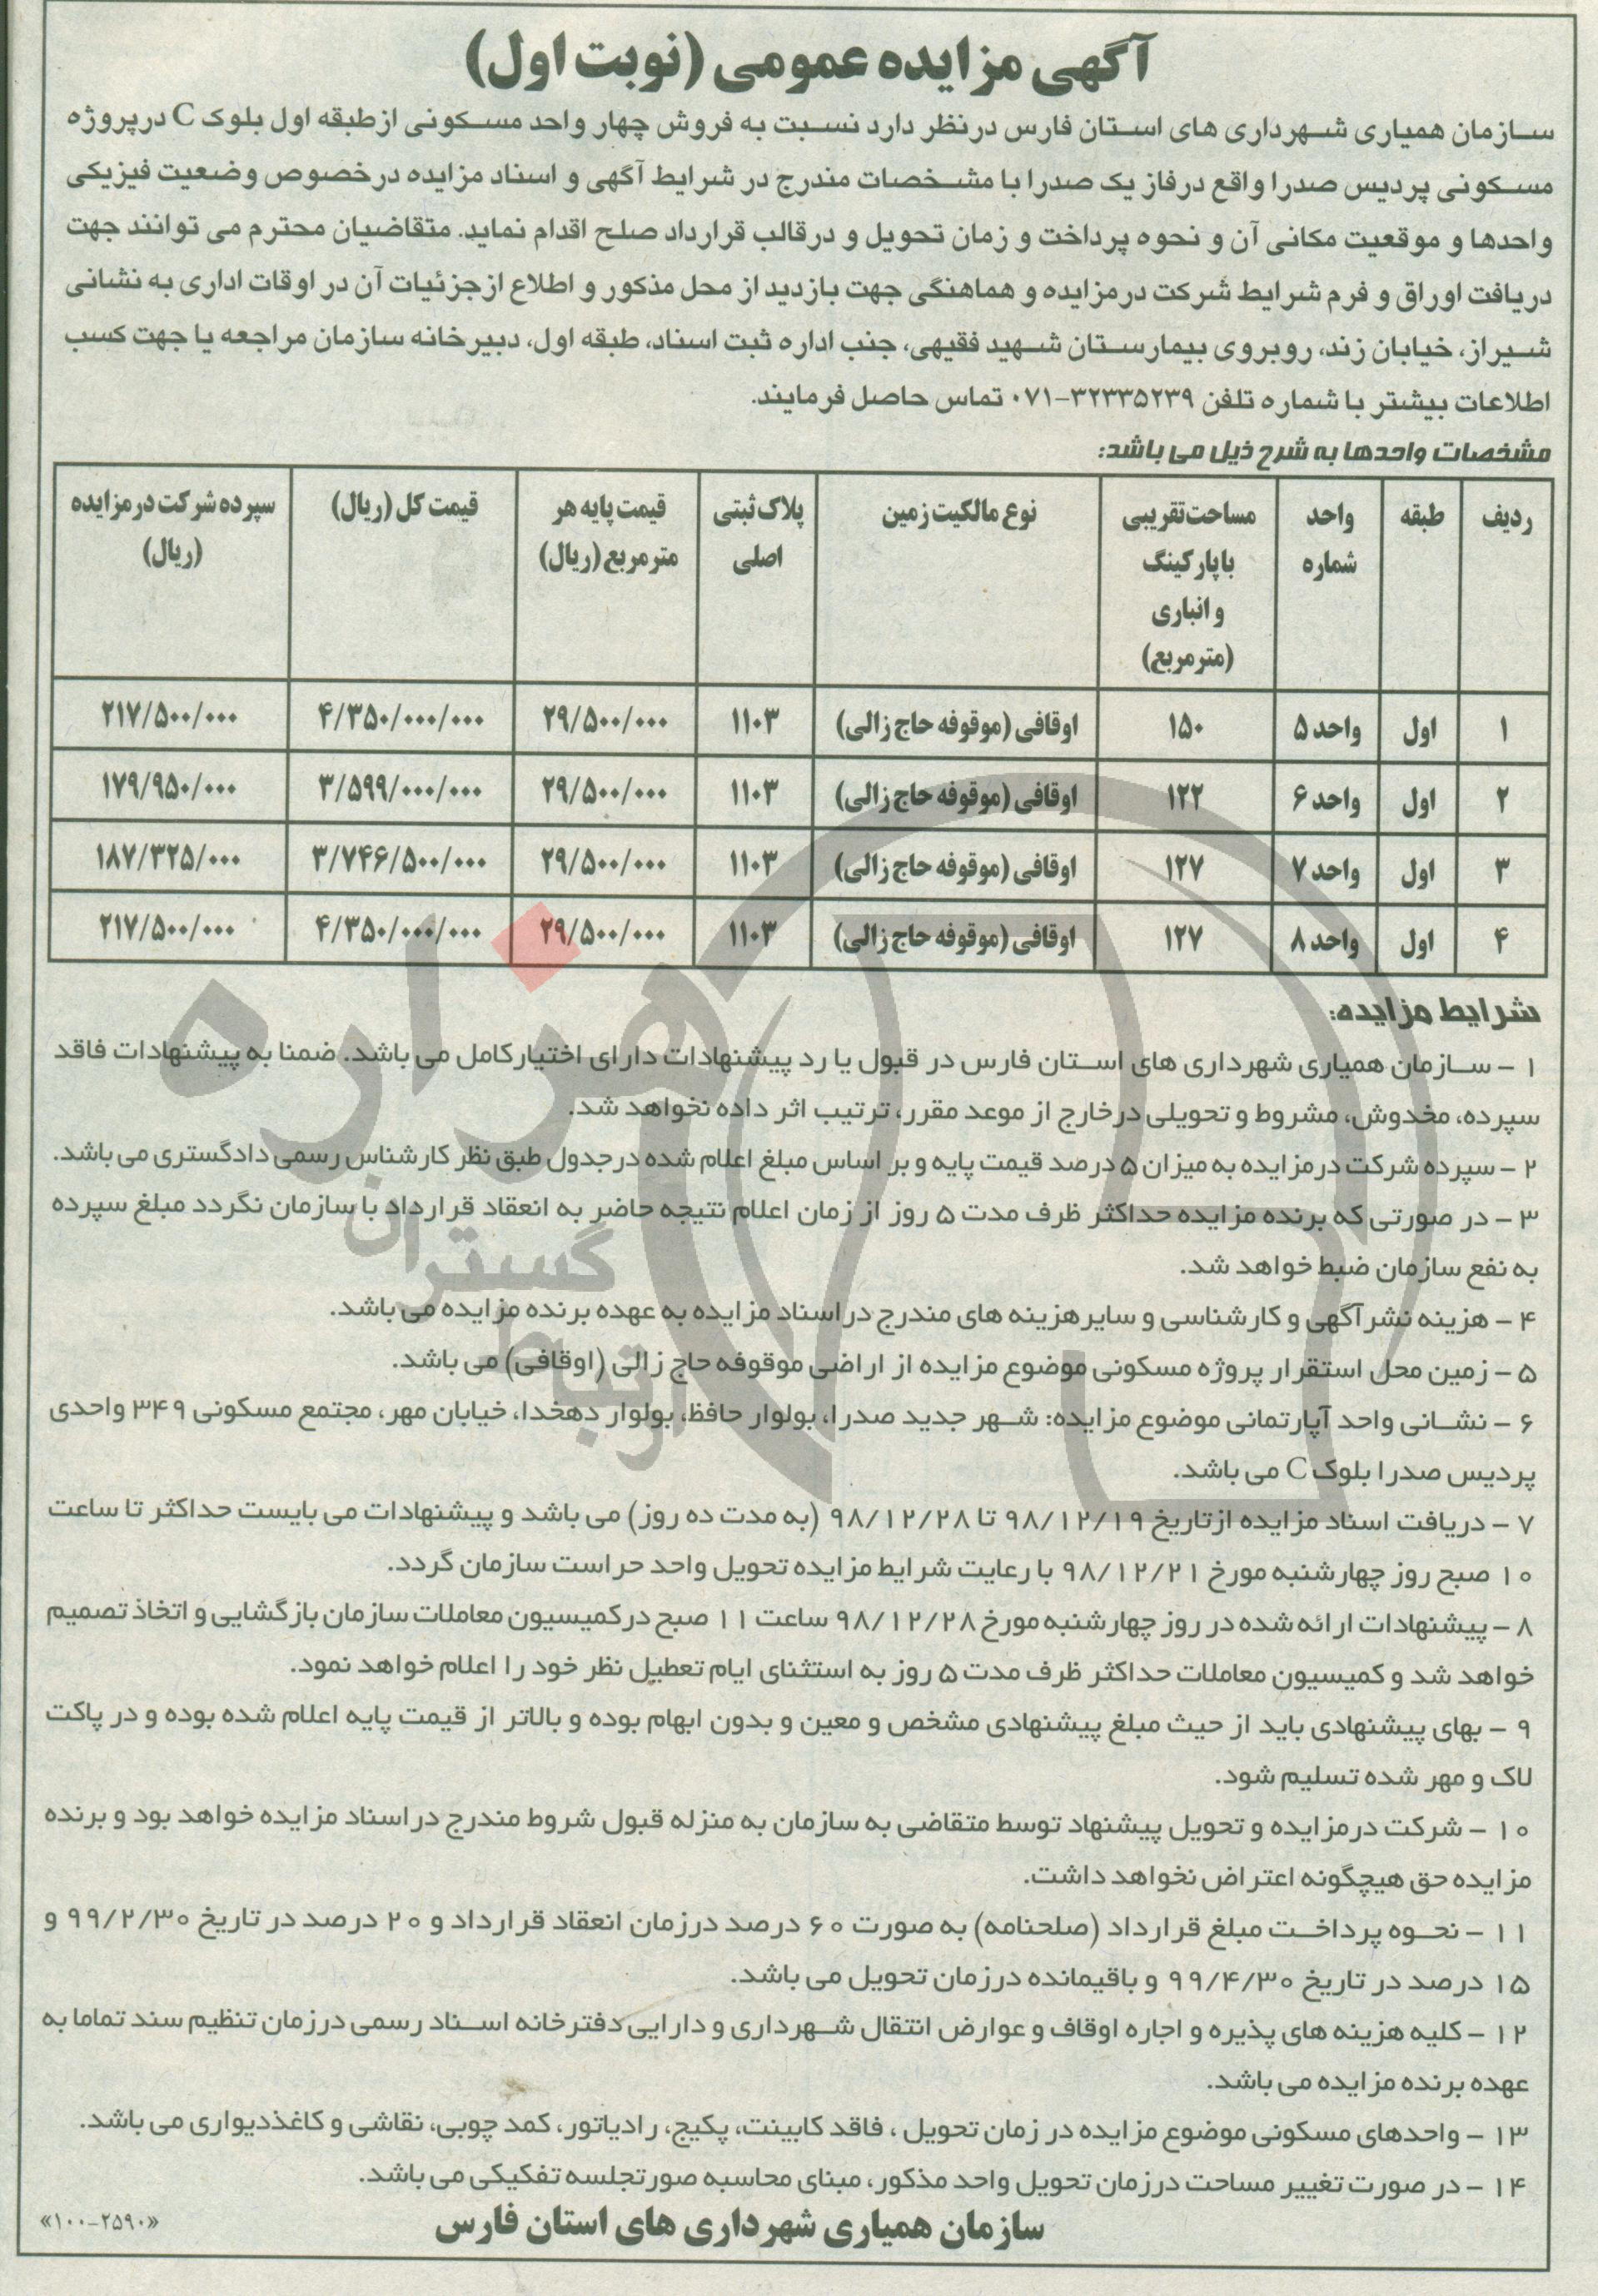 آگهی مزایده عمومی (نوبت اول)
سازمان همیاری شهرداری های استان فارس درنظر دارد نسبت به فروش چهار واحد مسکونی ازطبقه اول بلوک C درپروژه
مسکونی پردیس صدرا واقع درفاز یک صدرا با مشخصات مندرج در شرایط آگهی و اسناد مزایده درخصوص وضعیت فیزیکی
واحدها و موقعیت مکانی آن و نحوه پرداخت و زمان تحویل و درقالب قرارداد صلح اقدام نماید. متقاضیان محترم می توانند جهت
دریافت اوراق و فرم شرایط شرکت درمزایده و هماهنگی جهت بازدید از محل مذکور و اطلاع ازجزئیات آن در اوقات اداری به نشانی
شیراز، خیابان زند، روبروی بیمارستان شهید فقیهی، جنب اداره ثبت اسناد، طبقه اول، دبیرخانه سازمان مراجعه یا جهت کسب
اطلاعات بیشتر با شماره تلفن ۳۲۳۳۵۲۳۹-۰۷۱ تماس حاصل فرمایند.
مشخصات واحدها به شرح ذیل می باشد:
ردیف طبقه واحد شماره مساحت تقریبی با پارکینگ و انباری (مترمربع) نوع مالکیت زمین پلاک ثبتی اصلی قیمت پایه هر مترمربع (ریال) قیمت کل (ریال) سپرده شرکت درمزایده (ریال)
۱ اول واحد ۵ ۱۵۰ اوقافی (موقوفه حاج زالی) ۱۱۰۳ ۲۹/۵۰۰/۰۰۰ ۴/۳۵۰/۰۰۰/۰۰۰ ۲۱۷/۵۰۰/۰۰۰
۲ اول واحد ۶ ۱۲۲ اوقافی (موقوفه حاج زالی) ۱۱۰۳ ۲۹/۵۰۰/۰۰۰ ۳/۵۹۹/۰۰۰/۰۰۰ ۱۷۹/۹۵۰/۰۰۰
۳ اول واحد ۷ ۱۲۷ اوقافی (موقوفه حاج زالی) ۱۱۰۳ ۲۹/۵۰۰/۰۰۰ ۳/۷۴۶/۵۰۰/۰۰۰ ۱۸۷/۳۲۵/۰۰۰
۴ اول واحد ۸ ۱۲۷ اوقافی (موقوفه حاج زالی) ۱۱۰۳ ۲۹/۵۰۰/۰۰۰ ۴/۳۵۰/۰۰۰/۰۰۰ ۲۱۷/۵۰۰/۰۰۰
شرایط مزایده:
۱ - سازمان همیاری شهرداری های استان فارس در قبول یا رد پیشنهادات دارای اختیارکامل می باشد. ضمنا به پیشنهادات فاقد
سپرده، مخدوش، مشروط و تحویلی درخارج از موعد مقرر، ترتیب اثر داده نخواهد شد.
۲ - سپرده شرکت درمزایده به میزان ۵ درصد قیمت پایه و بر اساس مبلغ اعلام شده درجدول طبق نظر کارشناس رسمی دادگستری می باشد.
۳ - در صورتی که برنده مزایده حداکثر ظرف مدت ۵ روز از زمان اعلام نتیجه حاضر به انعقاد قرارداد با سازمان نگردد مبلغ سپرده
به نفع سازمان ضبط خواهد شد.
۴ - هزینه نشرآگهی و کارشناسی و سایرهزینه های مندرج دراسناد مزایده به عهده برنده مزایده می باشد.
۵ - زمین محل استقرار پروژه مسکونی موضوع مزایده از اراضی موقوفه حاج زالی (اوقافی) می باشد.
۶ - نشانی واحد آپارتمانی موضوع مزایده: شهر جدید صدرا، بولوار حافظ، بولوار دهخدا، خیابان مهر، مجتمع مسکونی ۳۴۹ واحدی
پردیس صدرا بلوک C می باشد.
۷ - دریافت اسناد مزایده ازتاریخ ۹۸/۱۲/۱۹ تا ۹۸/۱۲/۲۸ (به مدت ده روز) می باشد و پیشنهادات می بایست حداکثر تا ساعت
۱۰ صبح روز چهارشنبه مورخ ۹۸/۱۲/۲۱ با رعایت شرایط مزایده تحویل واحد حراست سازمان گردد.
۸ - پیشنهادات ارائه شده در روز چهارشنبه مورخ ۹۸/۱۲/۲۸ ساعت ۱۱ صبح درکمیسیون معاملات سازمان بازگشایی و اتخاذ تصمیم
خواهد شد و کمیسیون معاملات حداکثر ظرف مدت ۵ روز به استثنای ایام تعطیل نظر خود را اعلام خواهد نمود.
۹ - بهای پیشنهادی باید از حیث مبلغ پیشنهادی مشخص و معین و بدون ابهام بوده و بالاتر از قیمت پایه اعلام شده بوده و در پاکت
لاک و مهر شده تسلیم شود.
۱۰ - شرکت درمزایده و تحویل پیشنهاد توسط متقاضی به سازمان به منزله قبول شروط مندرج دراسناد مزایده خواهد بود و برنده
مزایده حق هیچگونه اعتراض نخواهد داشت.
۱۱ - نحوه پرداخت مبلغ قرارداد (صلحنامه) به صورت ۶۰ درصد درزمان انعقاد قرارداد و ۲۰ درصد در تاریخ ۹۹/۲/۳۰ و
۱۵ درصد در تاریخ ۹۹/۴/۳۰ و باقیمانده درزمان تحویل می باشد.
۱۲ - کلیه هزینه های پذیره و اجاره اوقاف و عوارض انتقال شهرداری و دارایی دفترخانه اسناد رسمی درزمان تنظیم سند تماما به
عهده برنده مزایده می باشد.
۱۳ - واحدهای مسکونی موضوع مزایده در زمان تحویل ، فاقد کابینت، پکیج، رادیاتور، کمد چوبی، نقاشی و کاغذدیواری می باشد.
۱۴ - در صورت تغییر مساحت درزمان تحویل واحد مذکور، مبنای محاسبه صورتجلسه تفکیکی می باشد.
سازمان همیاری شهرداری های استان فارس
«۱۰۰-۲۵۹۰»
هزاره
گستران
ارتباط